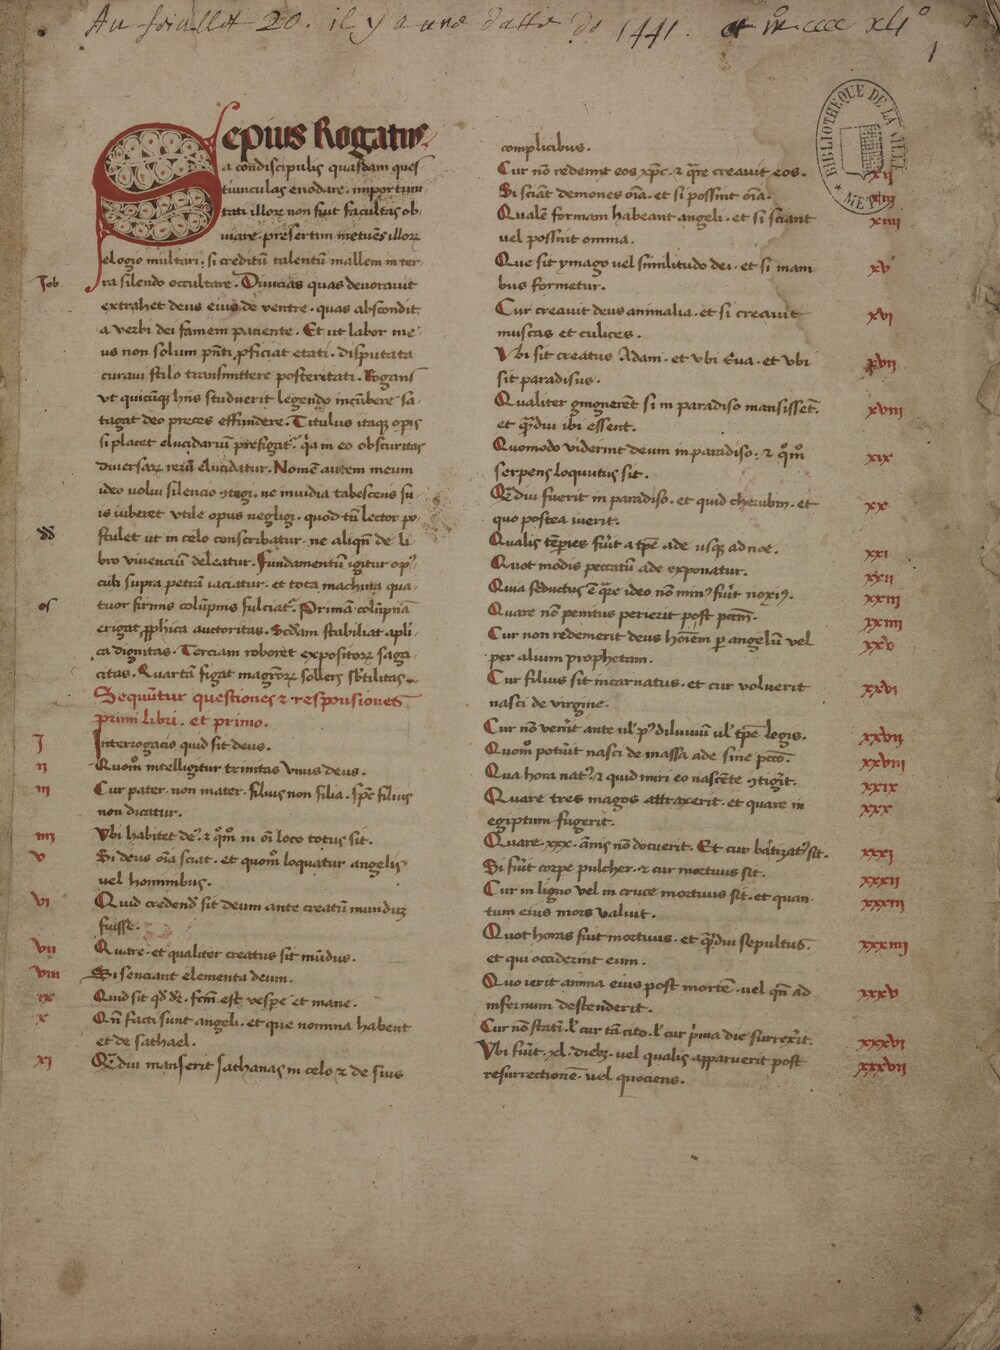 Au feiullet 20. il y a une datte de 1441. et mº cccc xliº
1
BIBLIOTHEQUE DE LA VILLE
METZ
Sepius Rogatus
a condiscipulis quasdam ques
tiunculas enodare. importuni
tati illoꝝ non fuit facultas ob
uiare. presertim metuēs illoꝝ
elogio multari. si creditū talentū mallem in ter
Job
ra silendo occultare. Diuicias quas deuorauit
extrahet deus eius de ventre. quas abscondit
a verbi dei famem paciente. Et ut labor me
us non solum pn̄ti ꝓficiat etati. disputata
curaui stilo transmittere posteritati. Rogans
vt quicūqꝫ hiis studuerit legendo incūbere sa
tagat deo preces effundere. Titulus itaqꝫ opis
si placet elucidariū prefigat᷑. q̇a in eo obscuritas
diuersaꝝ reꝝ elucidatur. Nomē autem meum
ideo volui silencio ꝯtegi. ne inuidia tabescens su
is iuberet vtile opus neglig. quod tn̄ lector po
stulet ut in celo conscribatur. ne aliqn̄ de li
bro viuenciū deleatur. Fundamentū igitur opꝰ
culi supra petrā iaciatur. et tota machina qua
tuor firmis colūpnis fulciat᷑. Primā colūpnā
erigat ꝓphica auctoritas. Scdam stabiliat apli
ca dignitas. Terciam roboret expositoꝝ saga
citas. Quartā figat magr̄oꝝ sollers sb̄tilitas.
Sequūtur questiones ⁊ responsiones
primi libri. et primo.
I Interrogacio quid sit deus.
ii Quom̊ intelligitur trinitas vnus deus.
iii Cur pater. non mater. filius non filia. sp̄c filius
non dicatur.
iiii Vbi habitet deꝰ. ⁊ qm̊ in oī loco totus sit.
v Si deus oīa sciat. et quom̊ loquatur angelis
vel hominibus.
vi Quid credendꝰ sit deum ante creatū mundū
fuisse.
vii Quare. et qualiter creatus sit mūdus.
viii Si senciant elementa deum.
ix Quid sit qd̄ dr̄. fcm̄ est vespe et mane.
x Qn̄ facti sunt angeli. et que nomina habent
et de sathael.
xi Qm̄diu manserit sathanas in celo ⁊ de suis
complicibus.
Cur nō redemit eos xp̄c. ⁊ q̄re creauit eos. xii
Si sciāt demones oīa. et si possint oīa. xiii
Qualē formam habeant angeli. et si sciant xiiii
vel possint omnia.
Que sit ymago vel similitudo dei. et si mani xv
bus formetur.
Cur creauit deus animalia. et si creauit xvi
muscas et culices.
Vbi sit creatus Adam. et vbi Eua. et vbi xvii
sit paradisus.
Qualiter gignerēt si in paradiso mansissēt. xviii
et qm̄diu ibi essent.
Quomodo viderint deum in paradiso. ⁊ qm̊ xix
serpens loquutus sit.
Qm̄diu fuerit in paradiso. et quid cherubin. et xx
quo postea ierit.
Qualis tēpies fuit a tpe ade usqꝫ ad noe. xxi
Quot modis peccatū ade exponatur. xxii
Quia seductus ē q̄re ideo nō minꝰ fuit noxiꝰ. xxiii
Quare nō penitus perierit post pctm̄. xxiiii
Cur non redemerit deus hoīem p angelū vel xxv
per alium prophetam.
Cur filius sit incarnatus. et cur voluerit xxvi
nasci de virgine.
Cur nō venit ante vl̓ pꝰ diluuiū vl̓ tpe legis. xxvii
Quom̊ potuit nasci de massa ade sine pctō. xxviii
Qua hora natꝰ. ⁊ quid miri eo nascēte ꝯtigit. xxix
Quare tres magos attraxerit. et quare in xxx
egiptum fugerit.
Quare. xxx. annis nō docuerit. Et cur batizatꝰ sit. xxxi
Si fuit corpe pulcher. ⁊ cur mortuus sit. xxxii
Cur in ligno vel in cruce mortuus sit. et quan xxxiii
tum eius mors valuit.
Quot horas fuit mortuus. et qm̄diu sepultus. xxxiiii
et qui occiderint eum.
Quo ierit anima eius post mortē. vel qn̄ ad xxxv
infernum descenderit.
Cur nō statī. l̓ cur tā cito. l̓ cur pma die surrexit. xxxvi
Vbi fuit. xl. diebꝫ. vel qualis apparuerit post xxxvii
resurrectionē. vel quociens.